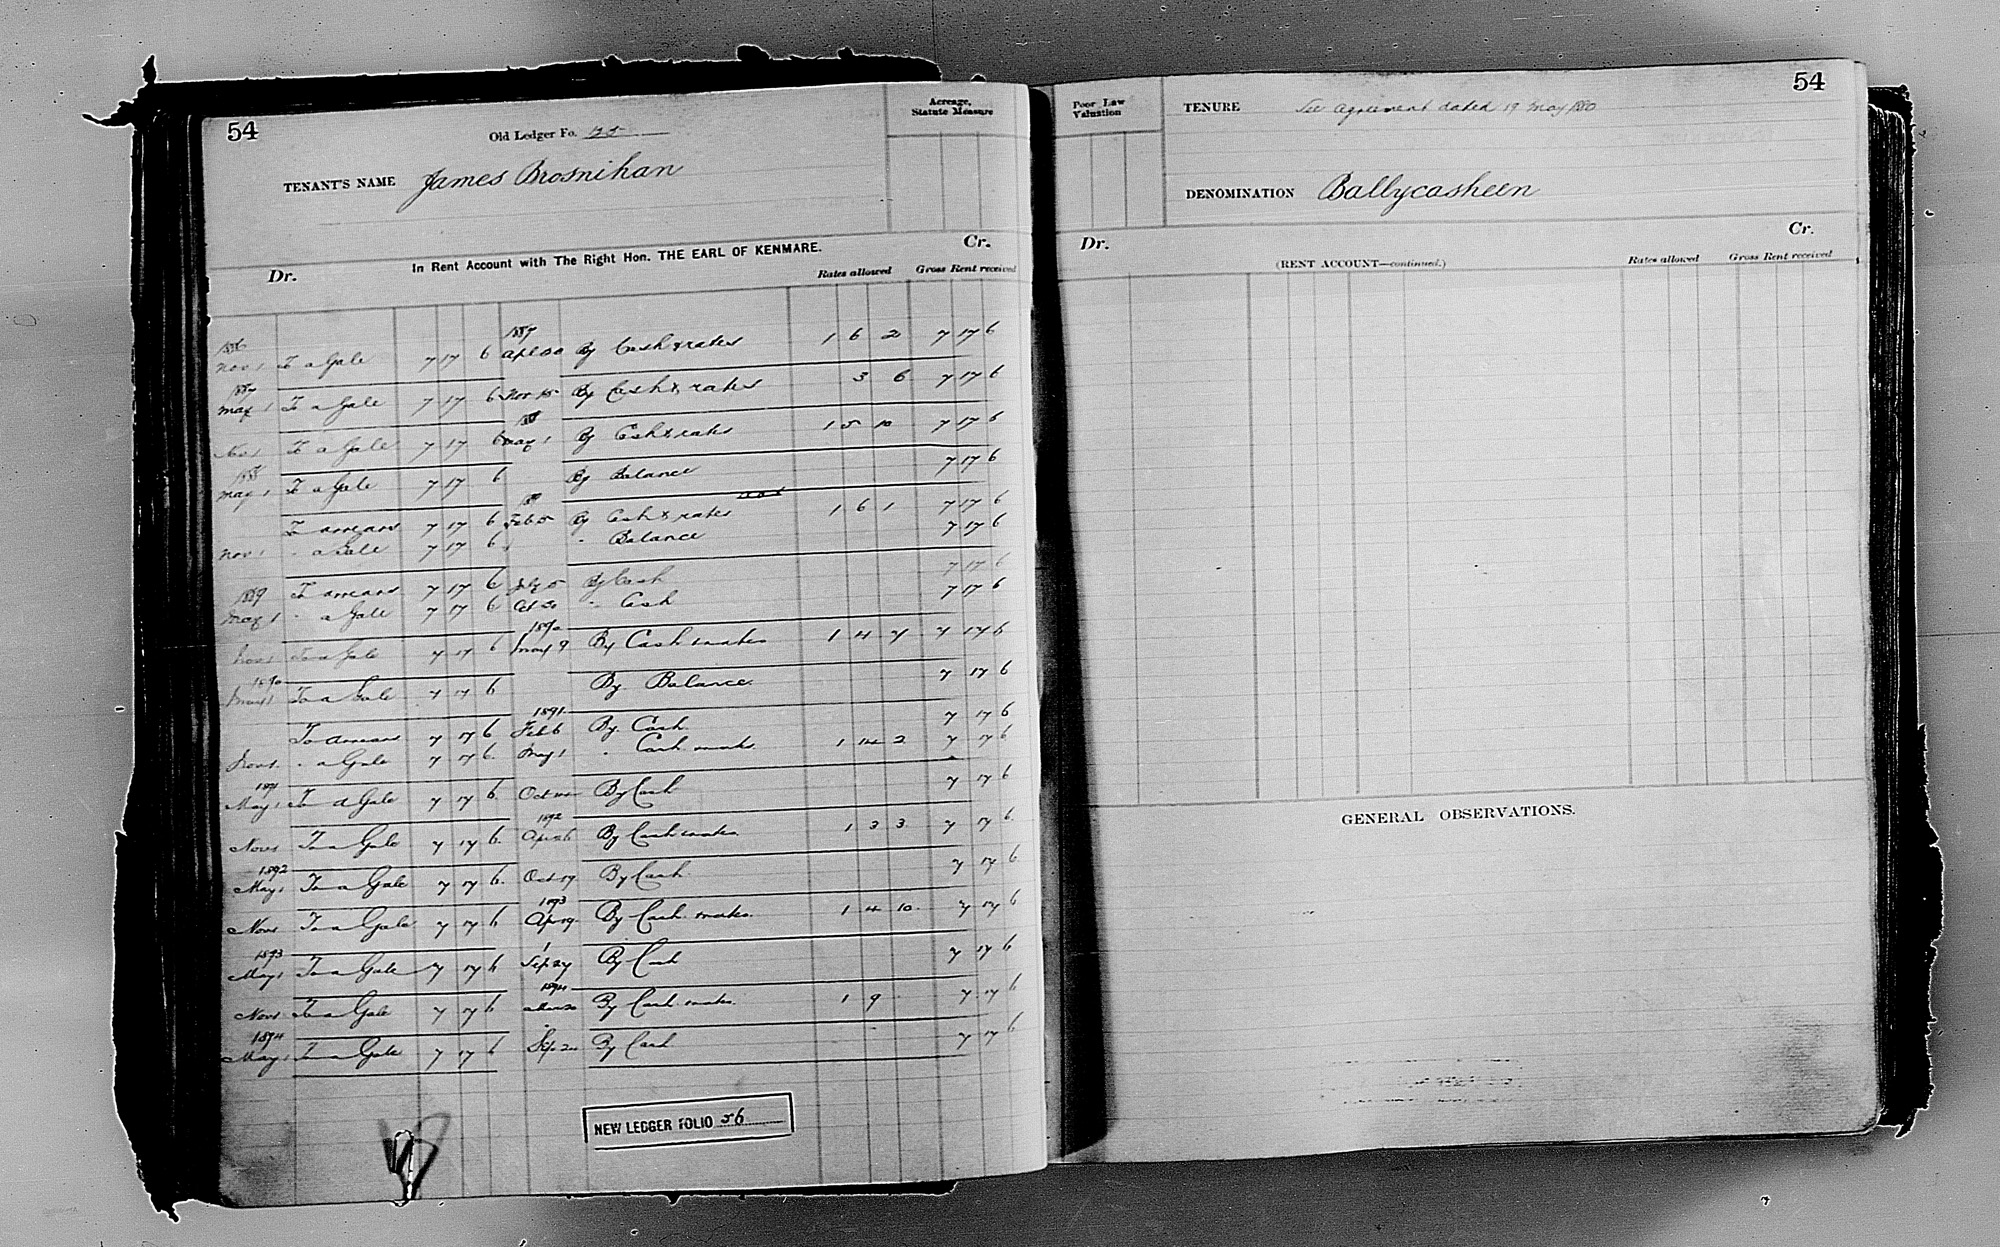 54
Old Ledger Fo. 125
Acreage,
Statute Measure
TENANT'S NAME James Brosnihan
In Rent Account with The Right Hon. THE EARL OF KENMARE.
Dr. Cr.
Rates allowed Gross Rent received
1886 1887
Nov 1 To a Gale 7 17 6 By Cash & rates 1 6 2 7 17 6
1887
May 1 To a Gale 7 17 6 Nov 15 By Cash & rates 3 6 7 17 6
1888
Nov 1 To a Gale 7 17 6 May 1 By Cash & rates 1 5 10 7 17 6
1888
May 1 To a Gale 7 17 6 By Balance 7 17 6
To arrears 7 17 6 Feb 5 By Cash & rates 1 6 1 7 17 6
Nov 1 " a Gale 7 17 6 " Balance 7 17 6
1889 To arrears 7 17 6 July 5 By Cash 7 17 6
May 1 " a Gale 7 17 6 Oct 20 " Cash 7 17 6
1890
Nov 1 To a Gale 7 17 6 May 9 By Cash & rates 1 4 7 7 17 6
1890
May 1 To a Gale 7 17 6 By Balance 7 17 6
1891
To arrears 7 17 6 Feb 6 By Cash 7 17 6
Nov 1 " a Gale 7 17 6 May 1 " Cash & rates 1 14 2 7 17 6
1891
May 1 To a Gale 7 17 6 Oct By Cash 7 17 6
1892
Nov 1 To a Gale 7 17 6 Apr 26 By Cash & rates 1 3 3 7 17 6
1892
May 1 To a Gale 7 17 6 Oct 17 By Cash 7 17 6
1893
Nov 1 To a Gale 7 17 6 Apr 19 By Cash & rates 1 4 10 7 17 6
1893
May 1 To a Gale 7 17 6 Sep 27 By Cash 7 17 6
1894
Nov 1 To a Gale 7 17 6 By Cash & rates 1 9 - 7 17 6
1894
May 1 To a Gale 7 17 6 Sep 20 By Cash 7 17 6
NEW LEDGER FOLIO 56
54
Poor Law
Valuation
TENURE See agreement dated 19 May 1880
DENOMINATION Ballycasheen
Dr. Cr.
(RENT ACCOUNT—continued.) Rates allowed Gross Rent received
GENERAL OBSERVATIONS.